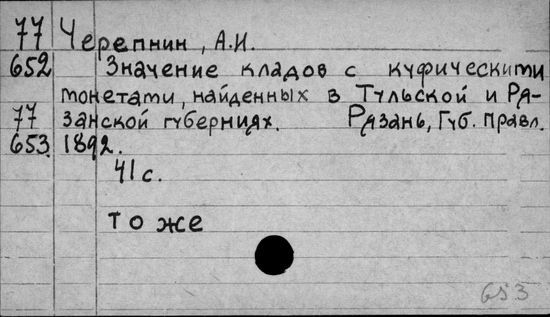 77 Черепнин, А.И.
652 Значение кладов с куфическими
монетами, найденных в Тульской и Ря-
77 занской губерниях. Рязань, Губ. правл.
653. 1892.
41 с.
то же
653